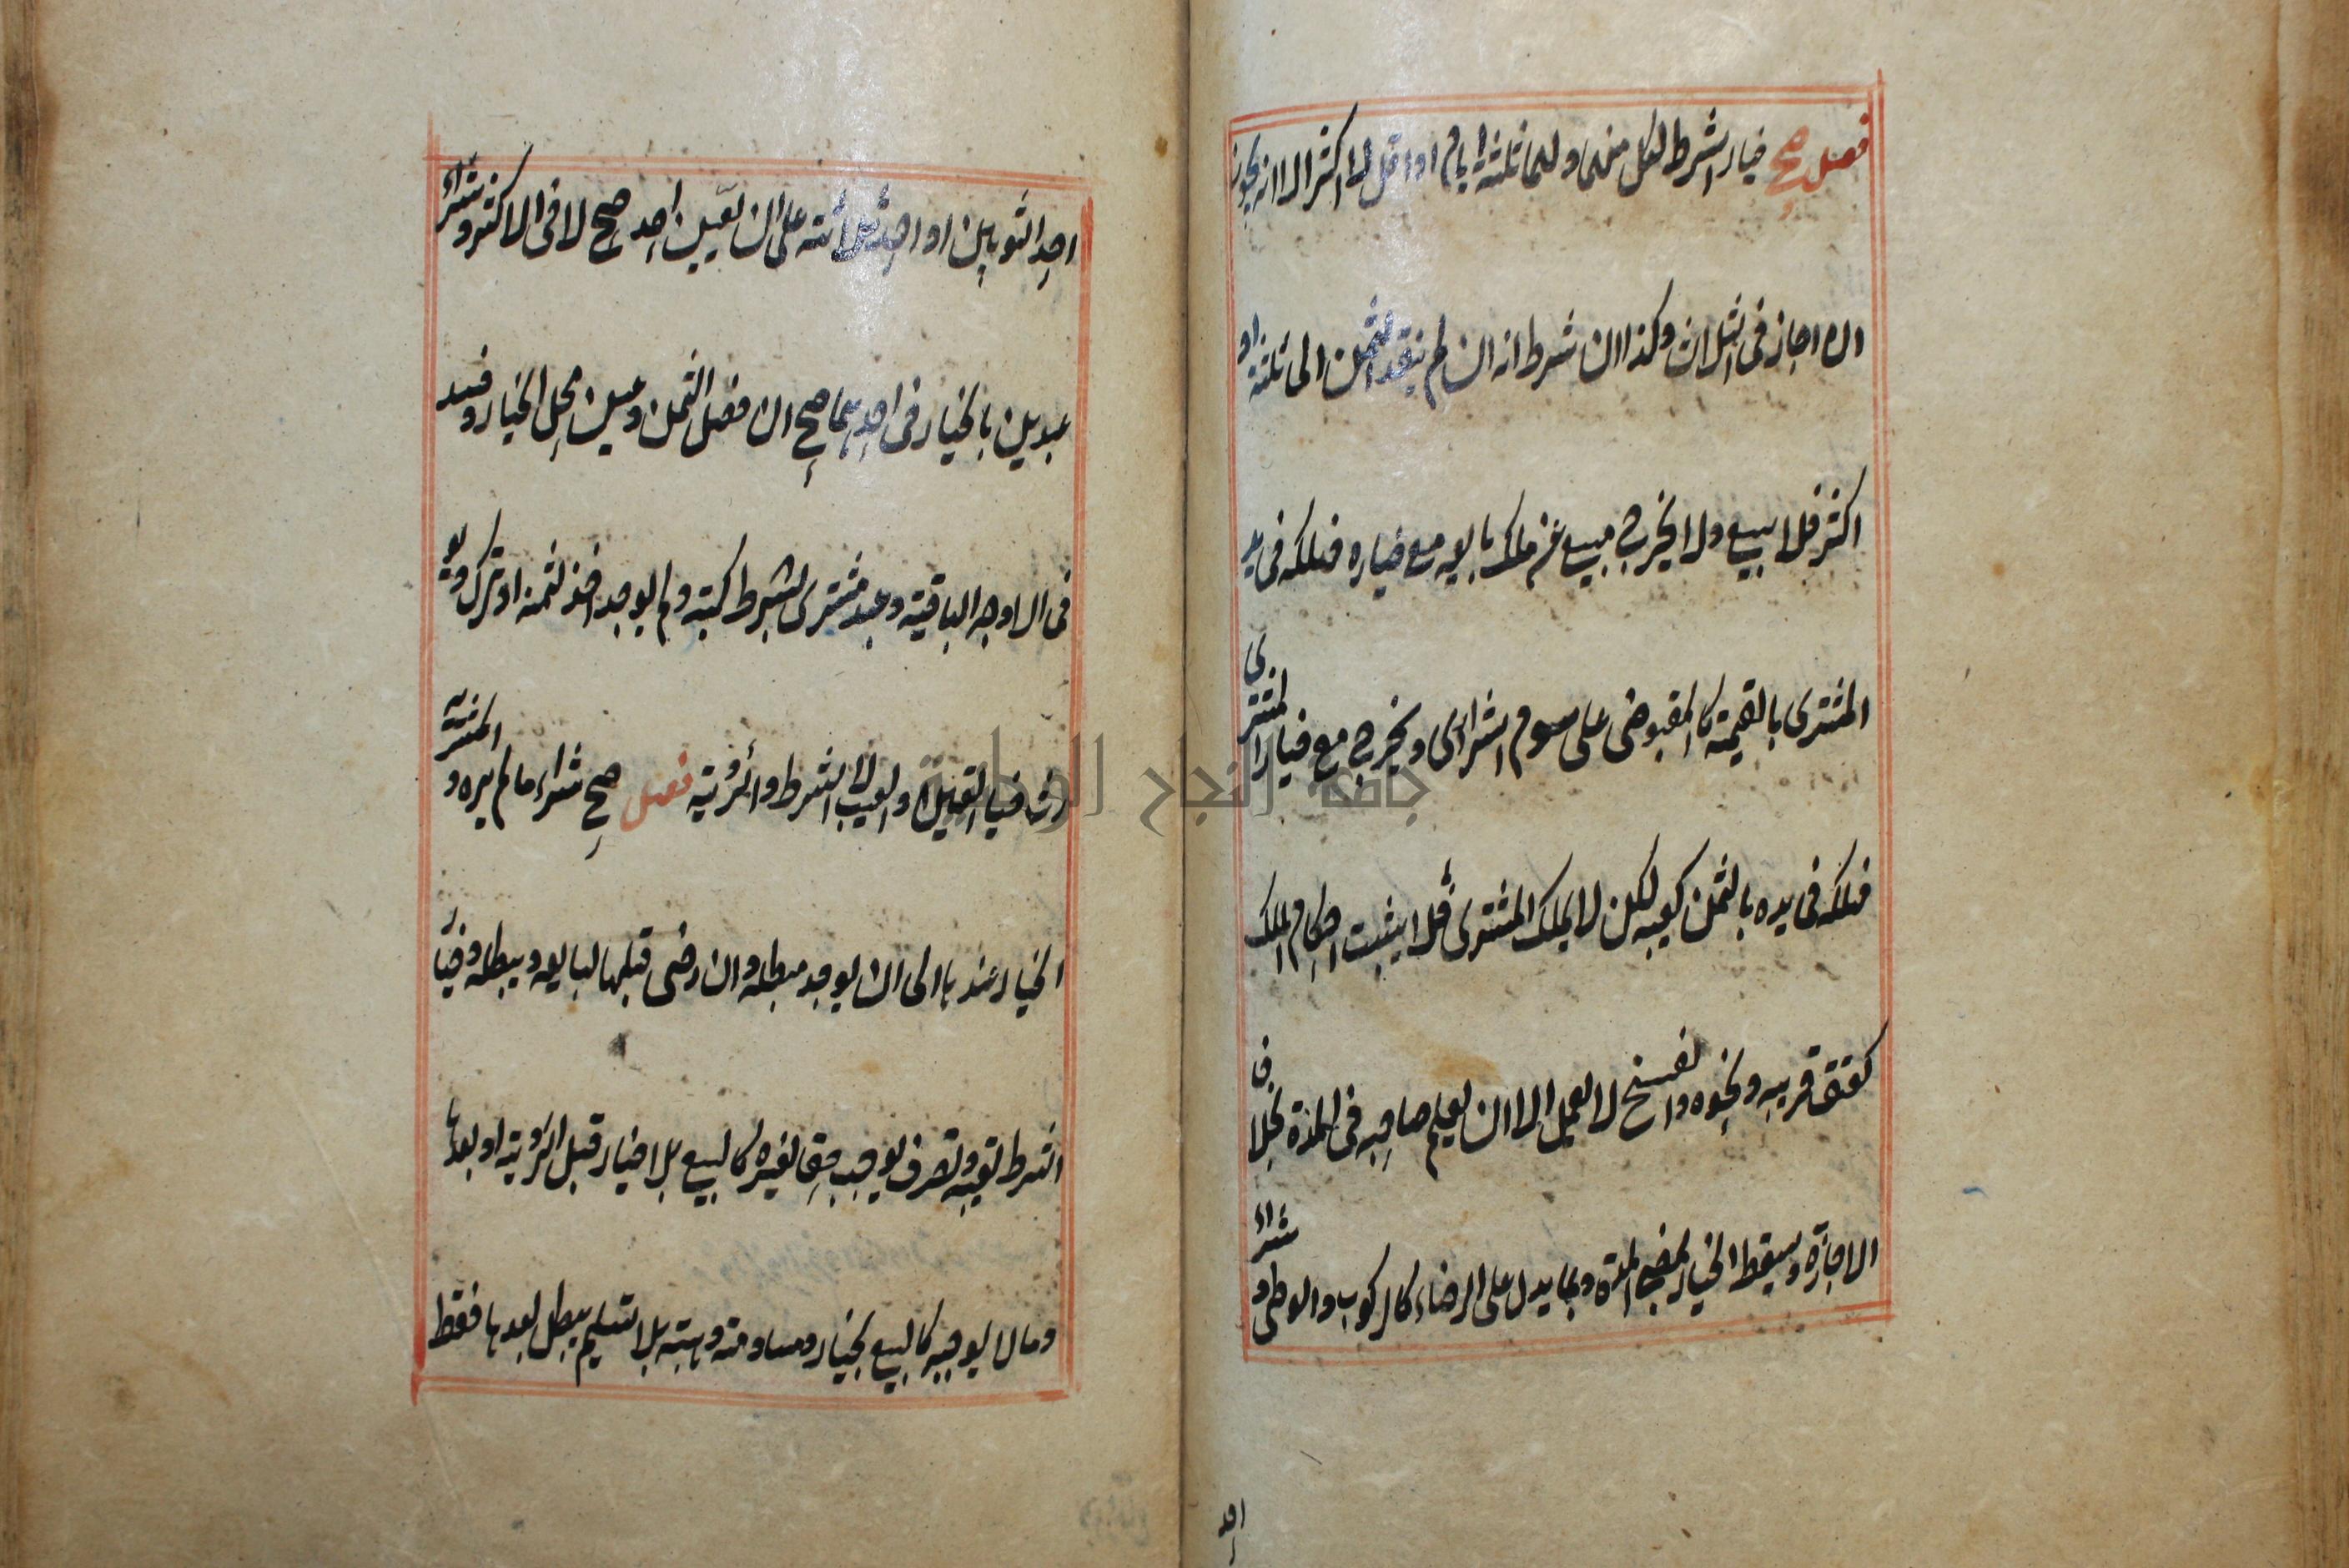 فصل صح خيار الشرط لكل منهما ولهما ثلثة ايام او اقل لا اكثر الا انه يجوز
ان اجاز في الثلاث وكذا ان شرط انه ان لم ينقد الثمن الى ثلثة او
اكثر فلا بيع ولا يخرج مبيع عن ملك بايعه مع خياره فهلكه في يد
المشترى بالقيمة كالمقبوض على سوم الشراء ويخرج مع خيار المشترى
فهلكه في يده بالثمن كعيبه لكن لا يملك المشترى فلا يثبت احكام الملك
كعتق قريبه ونحوه والفسخ لا يعمل الا ان يعلم صاحبه في المدة بخلاف
الاجازة ويسقط الخيار بمضي المدة وبما يدل على الرضاء كالركوب والوطي وشراء
احد
احد الثوبين او احد ثلاثة على ان يعين احد صح لا في الاكثر وشراء
عبدين بالخيار في احدهما صح ان فصل الثمن وعين محل الخيار وفسد
في الاوجه الباقية وعبد مشترى بشرط كتبه ولم يوجد اخذ بثمنه او ترك ويو
رث خيار التعيين والعيب لا الشرط والرؤية فصل صح شراء ما لم يره و لمشتريه
الخيار عندها الى ان يوجد مبطله وان رضي قبلها لبايعه ويبطله وخيار
الشرط تعيبه وتصرف يوجب حق لغيره كالبيع بلا خيار قبل الرؤية او بعدها
وما لا يوجبه كالبيع بخيار ومساومة وهبة بلا تسليم يبطل بعدها فقط
جامعة النجاح الوطنية